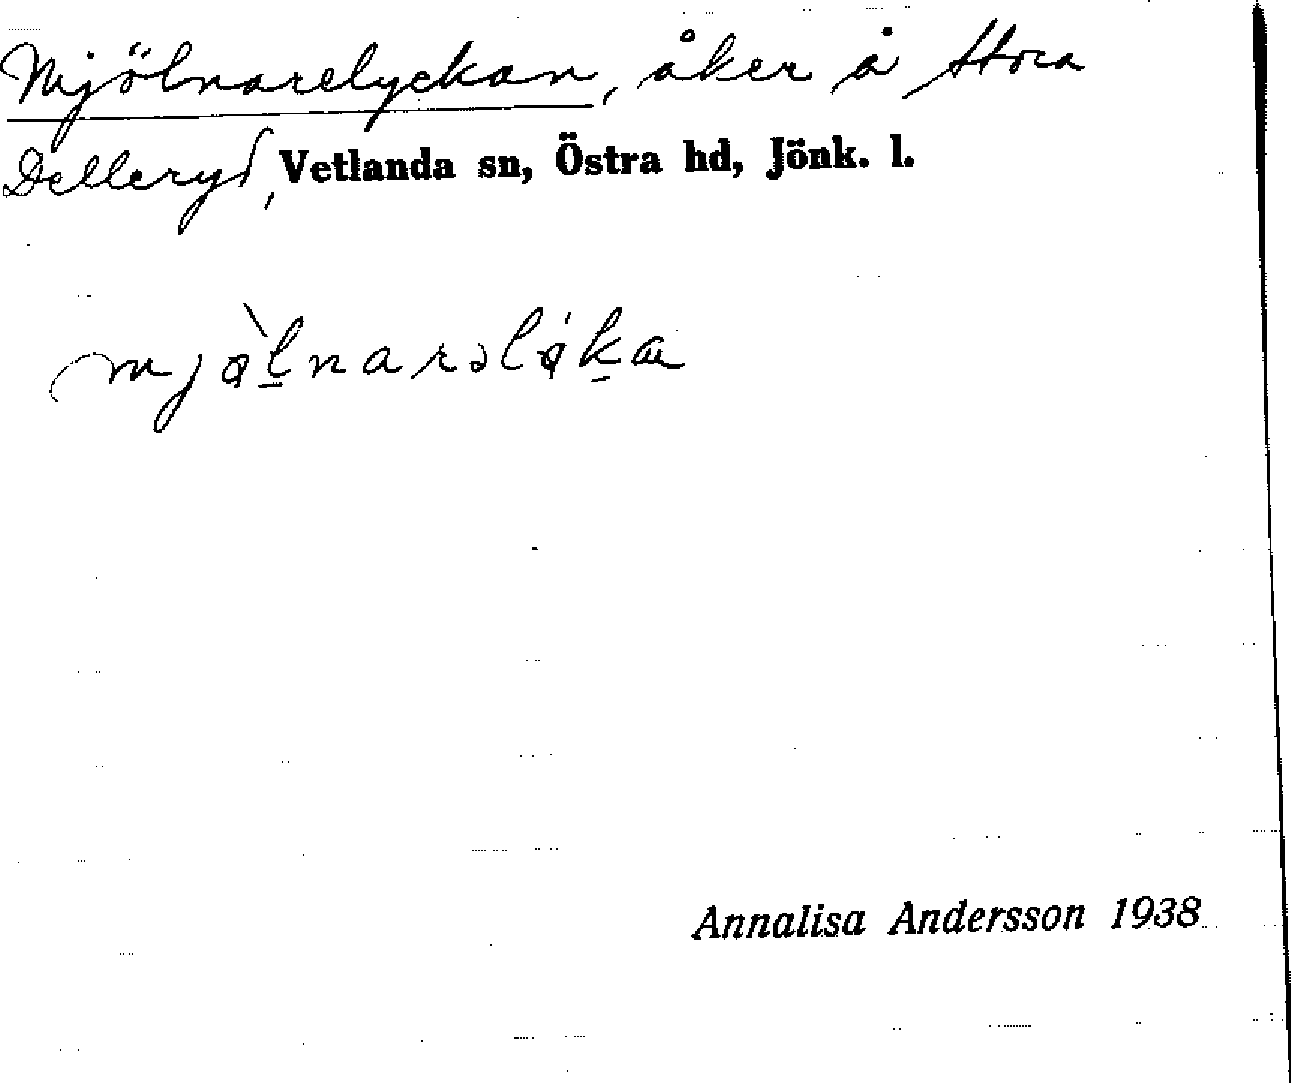 Mjölnarelyckan, åker å Stora
Delleryd, Vetlanda sn, Östra hd, Jönk. l.
Annalisa Andersson 1938